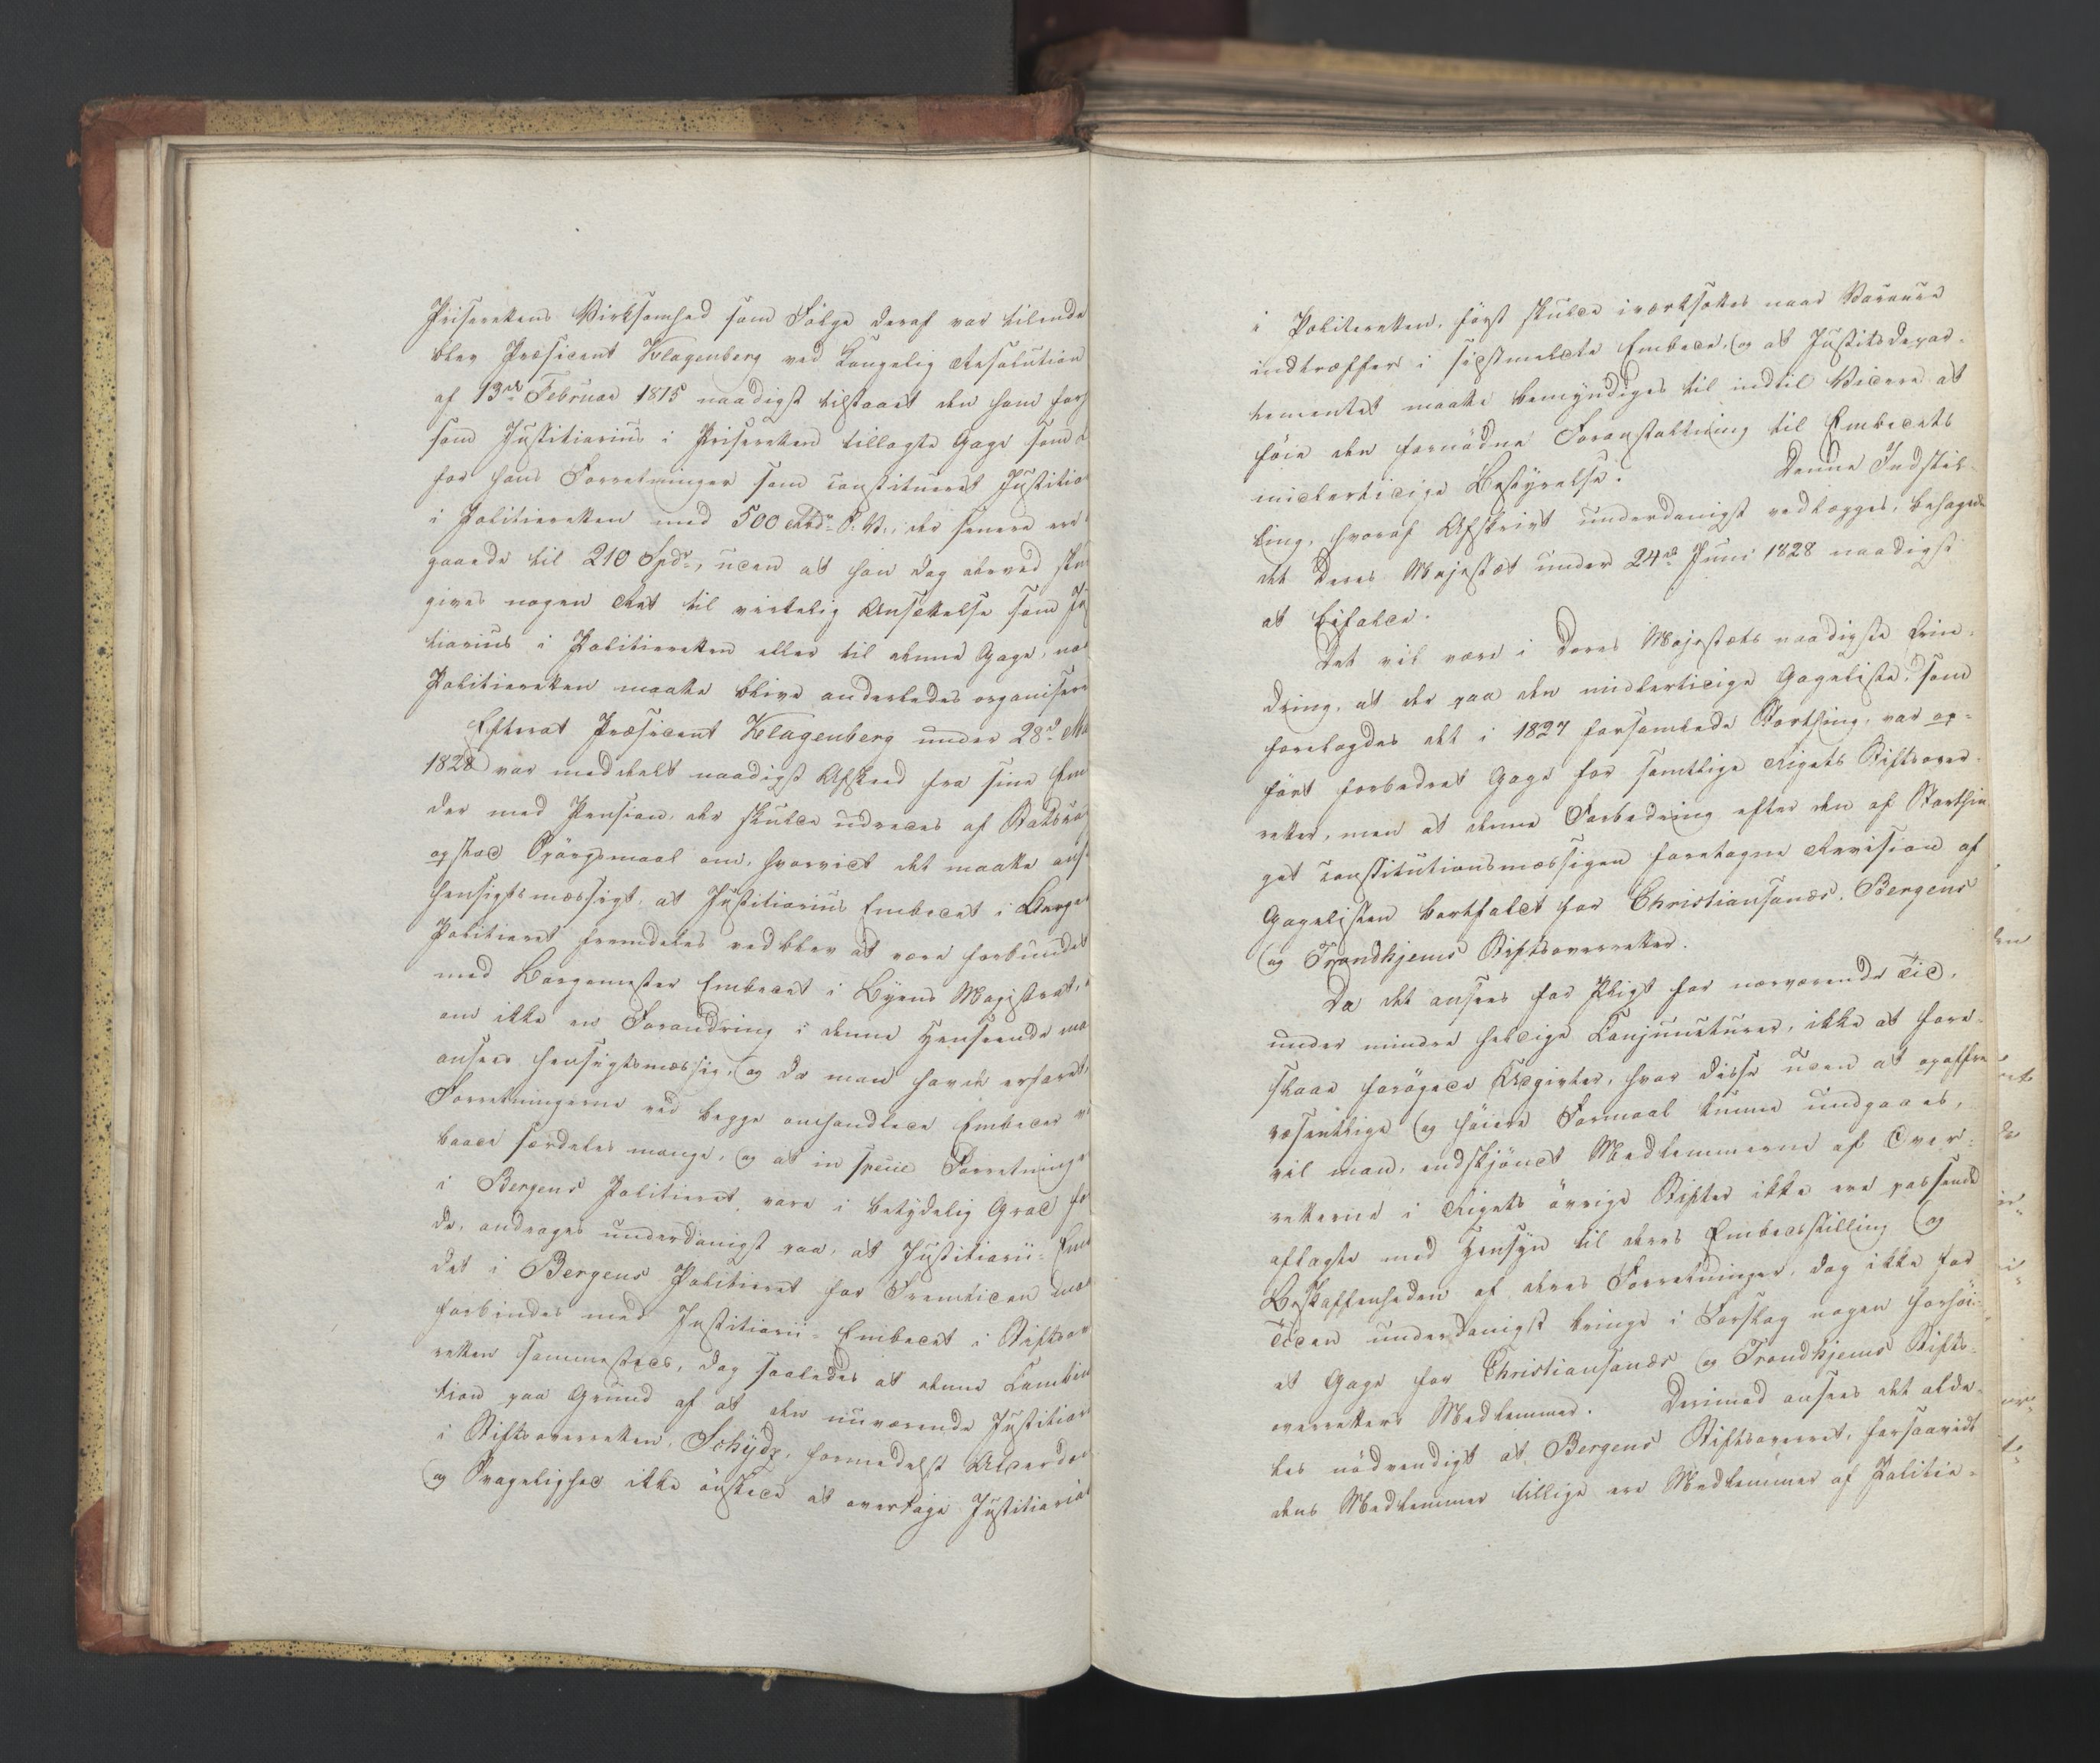 Priserettens Virksomhed som Følge deraf var tilende
blev Præsident Klagenberg ved Kongelig Resolution
af 13de Februar 1815 naadigst tilstaaet den ham for
som Justitiarius i Priseretten tillagte Gage som
for hans Forretninger som constitueret Justitia
i Politieretten med 500 Rbdr S. V., der senere ere
gaaede til 210 Spdr, uden at han dog derved skul
gives nogen Ret til virkelig Ansættelse som Ju
tiarius i Politieretten eller til denne Gage, naa
Politieretten maatte blive anderledes organisere
Efterat Præsident Klagenberg under 28d Ma
1828 var meddeelt naadigst Afskeed fra sine Em
der med Pension, der skulde udredes af Statska
opstod Spørgsmaal om, hvorvidt det maatte ans
hensigtsmæssigt, at Justitiarius Embedet i Berge
Politieret fremdeles vedblev at være forbundet
med Borgemester Embedet i Byens Magistrat,
om ikke en Forandring i denne Henseende maa
ansees hensigtsmæssig, og da man havde erfaret,
Forretningerne ved begge omhandlede Embeder v
baade særdeles mange, og at in specie Forretninge
i Bergens Politieret vare i betydelig Grad for
de, androges underdanigst paa, at Justitiarii-Emb
det i Bergens Politieret for Fremtiden maa
forbindes med Justitiarii-Embedet i Stiftsov
retten sammesteds, dog saaledes at denne Combin
tion paa Grund af at den nuværende Justitiari
i Stiftsoverretten, Schydz, formedelst Alderdom
og Svagelighed ikke ønskede at overtage Justitiariat
i Politieretten, først skulde iværksættes naar Vacance
indtræffer i sidstmeldte Embede, og at Justitsdepar-
tementet maatte bemyndiges til indtil Videre at
føie den fornødne Foranstaltning til Embedets
midlertidige Bestyrelse. Denne Indstil-
ling, hvoraf Afskrivt underdanigst vedlægges, behagede
det Deres Majestæt under 24de Juni 1828 naadigst
at bifalde.
Det vil være i Deres Majestæts naadigste Erin-
dring, at der paa den midlertidige Gageliste, som
forelagdes det i 1827 forsamlede Storthing, var op-
ført forbedret Gage for samtlige Rigets Stiftsover-
retter, men at denne Forbedring efter den af Storthin
get constitutionsmæssigen foretagne Revision af
Gagelisten bortfaldt for Christiansands, Bergens
og Trondhjems Stiftsoverretter.
Da det ansees for Pligt for nærværende Tid,
under mindre heldige Conjuncturer, ikke at fore-
slaae forøgede Udgivter, hvor disse uden at opoffre
væsentlige og høiere Formaal kunne undgaaes,
vil man, endskjøndt Medlemmerne af Over-
retterne i Rigets øvrige Stifter ikke ere passende
aflagte med Hensyn til deres Embedsstilling og
Beskaffenheden af deres Forretninger, dog ikke for
Tiden underdanigst bringe i Forslag nogen forhøi-
et Gage for Christiansands og Trondhjems Stifts-
overretters Medlemmer. Derimod ansees det alde-
les nødvendigt at Bergens Stiftsoverret, forsaavidt
dens Medlemmer tillige ere Medlemmer af Politie-